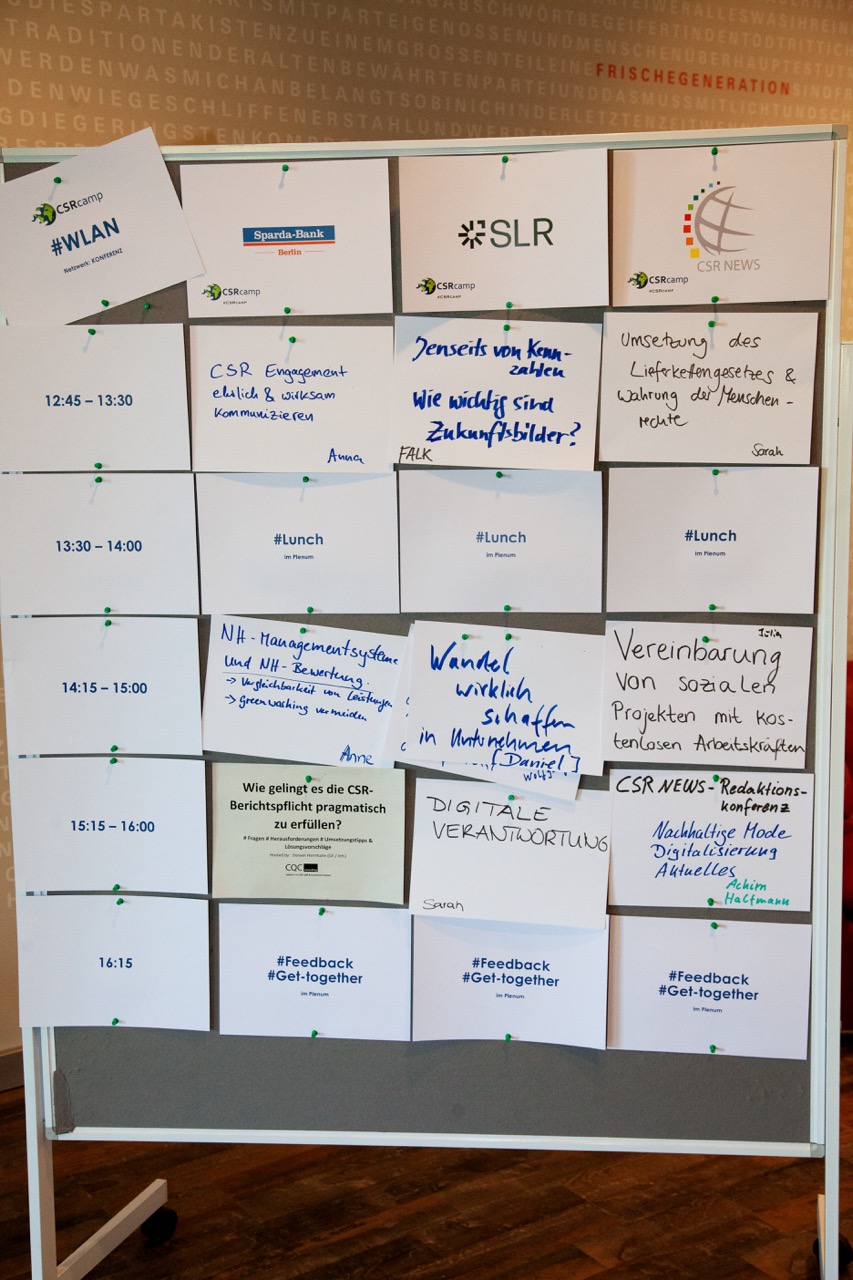 FRISCHEGENERATION
CSRcamp
#WLAN
Netzwerk: KONFERENZ
Sparda-Bank
Berlin
CSRcamp
#CSRcamp
SLR
CSRcamp
#CSRcamp
CSR NEWS
CSRcamp
#CSRcamp
12:45 – 13:30
CSR Engagement
ehrlich & wirksam
kommunizieren
Anna
Jenseits von Kenn-
zahlen
Wie wichtig sind
Zukunftsbilder?
FALK
Umsetzung des
Lieferkettengesetzes &
Wahrung der Menschen-
rechte
Sarah
13:30 – 14:00
#Lunch
im Plenum
#Lunch
im Plenum
#Lunch
im Plenum
14:15 – 15:00
NH-Managementsysteme
und NH-Bewertung.
→ Vergleichbarkeit von Leistungen
→ Greenwashing vermeiden
Anne
Wandel
wirklich
schaffen
in Unternehmen
[Daniel]
Julia
Vereinbarung
von sozialen
Projekten mit kos-
tenlosen Arbeitskräften
15:15 – 16:00
Wie gelingt es die CSR-
Berichtspflicht pragmatisch
zu erfüllen?
# Fragen # Herausforderungen # Umsetzungstipps &
Lösungsvorschläge
CQC
DIGITALE
VERANTWORTUNG
Sarah
CSR NEWS-Redaktions-
konferenz
Nachhaltige Mode
Digitalisierung
Aktuelles
Achim
Halfmann
16:15
#Feedback
#Get-together
im Plenum
#Feedback
#Get-together
im Plenum
#Feedback
#Get-together
im Plenum